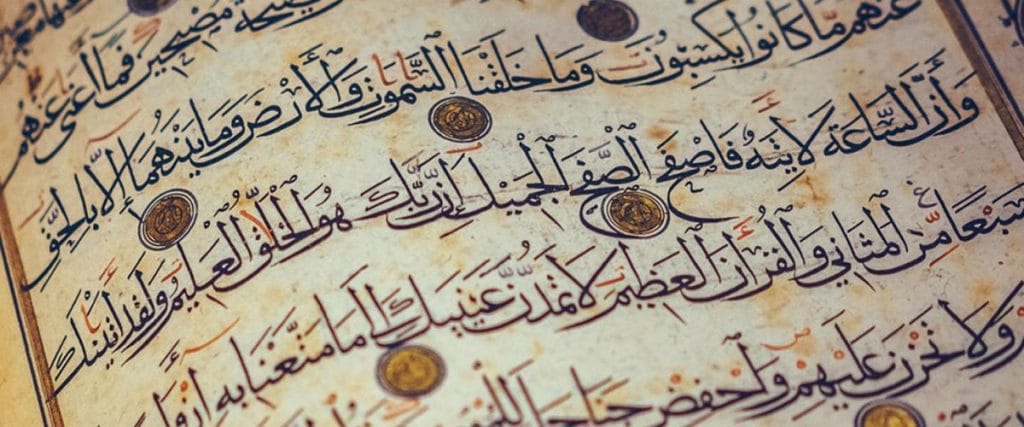 مصبحين فما أغنى عنهم
عنهم ما كانوا يكسبون وما خلقنا السموت والأرض وما بينهما إلا بالحق
وإن الساعة لآتية فاصفح الصفح الجميل إن ربك هو الخلق العليم ولقد آتينك
سبعا من المثاني والقرآن العظيم لا تمدن عينيك إلى ما متعنا به
ولا تحزن عليهم واخفض جناحك